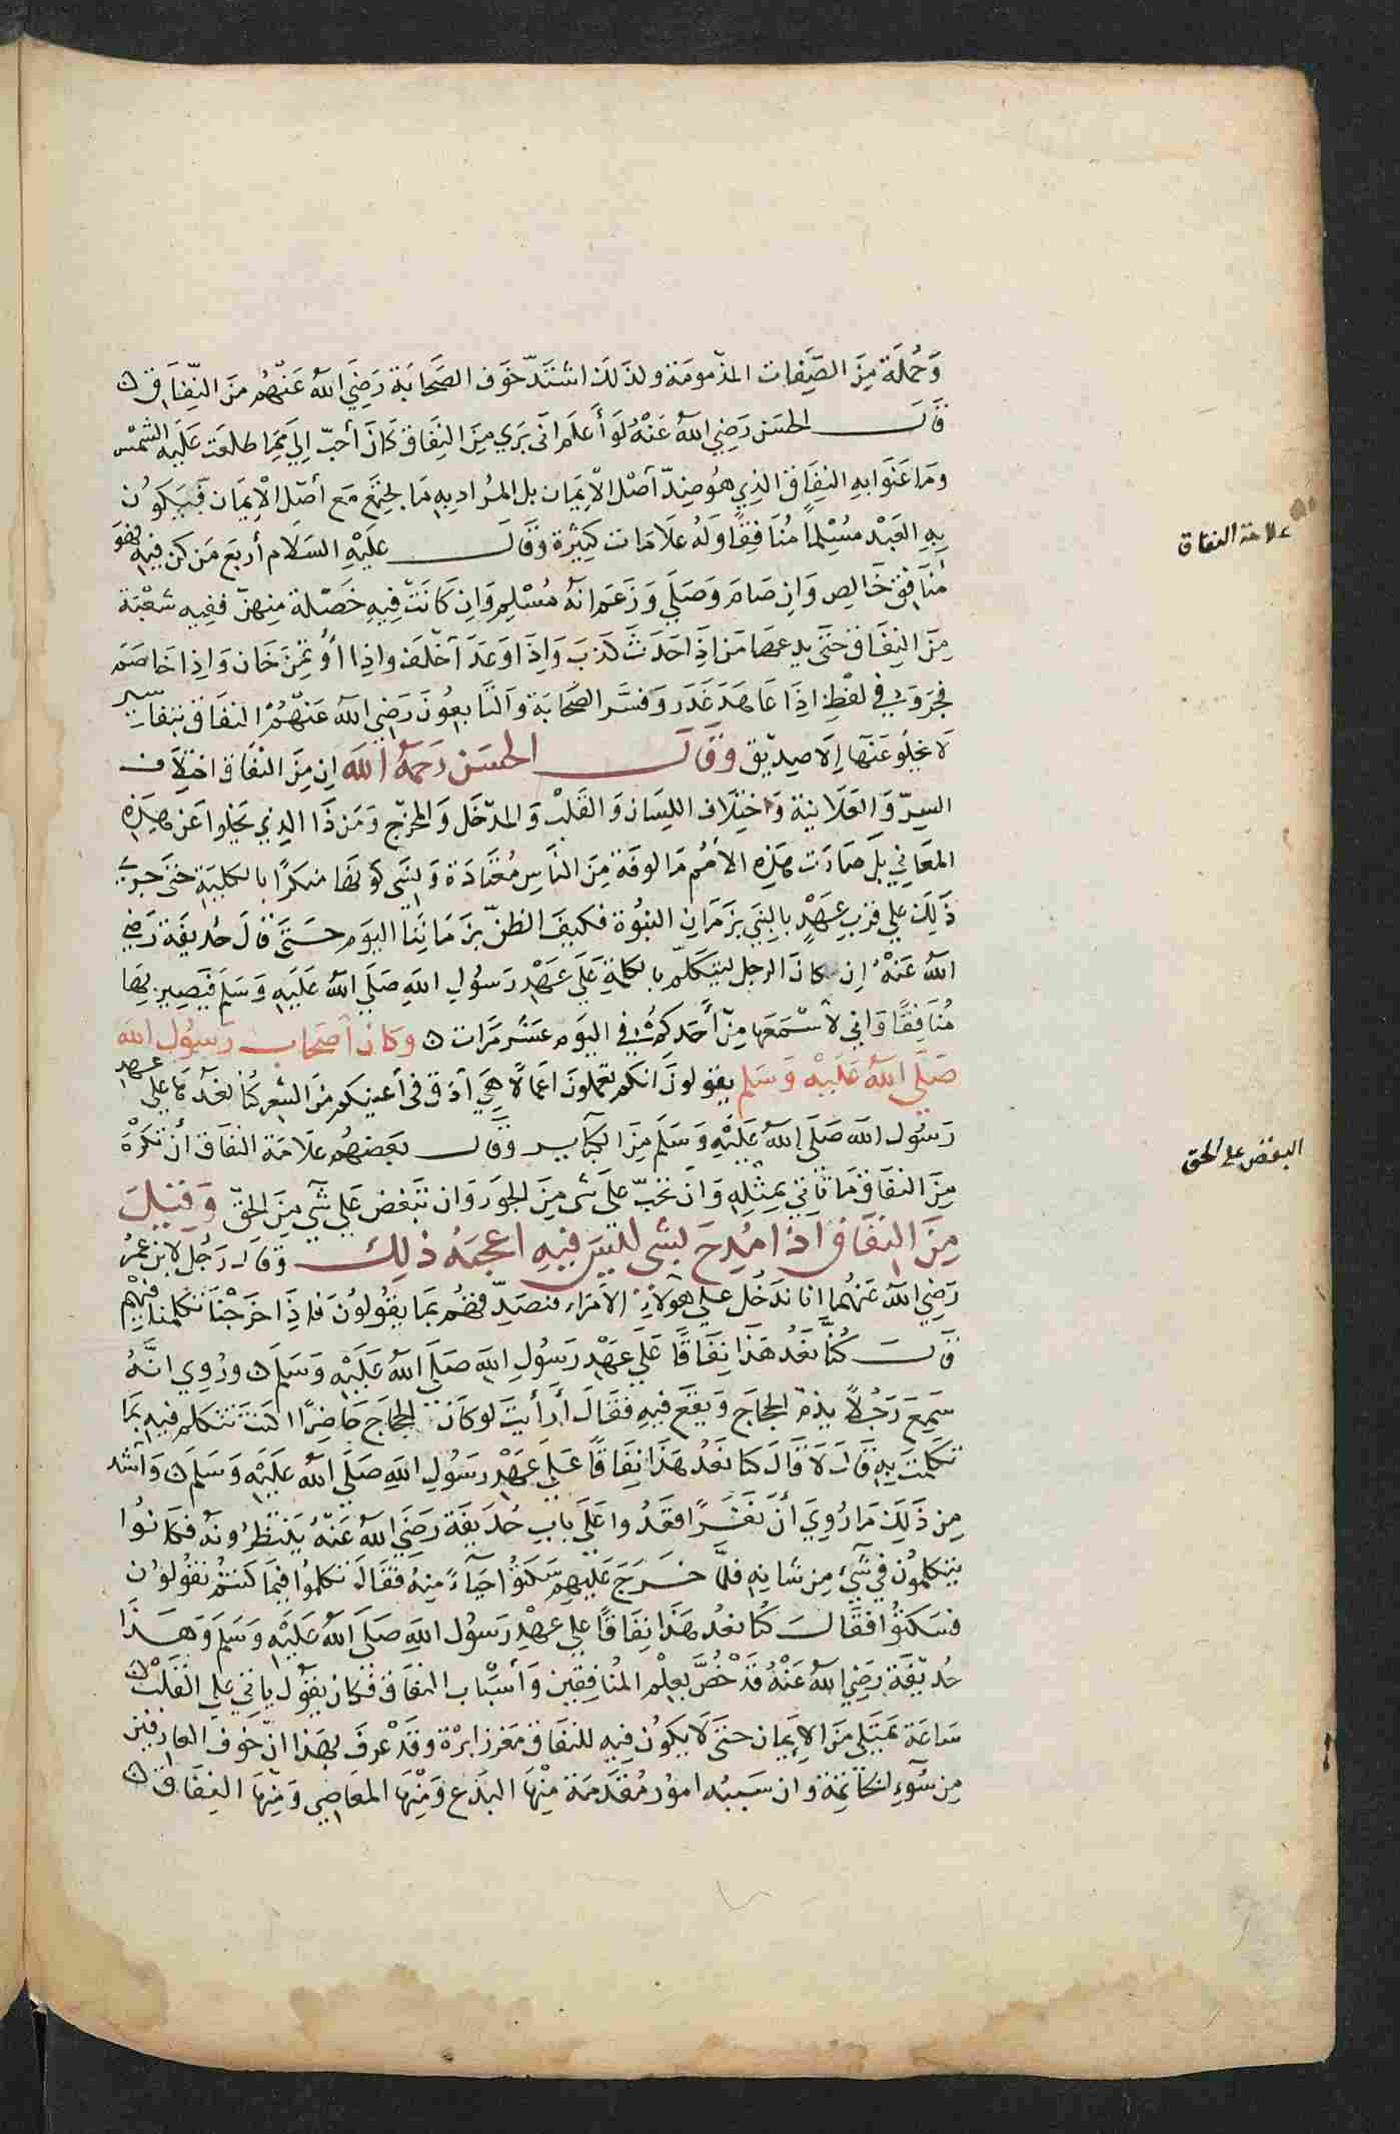 وَجُملَة مِنَ الصِّفات المذمومَة ولذلك اشتَدّ خوَف الصَحَابَة رَضِيَ اللهُ عَنْهُم مِنَ النِّفَاق ن
قَالَ الحسَن رَضِي اللهُ عَنْهُ لَوَ أعلَم انى بَرِي مِنَ النِفَاق كَانَ أحَبّ إليَ مِمَا طلعَت عَليَه الشمْس
ومَا عَنَوا بهِ النِفَاق الذِي هوُ ضِدّ أصْل الاِيمَان بل المُراد بهِ مَا يجتمِع مَع أصْل الاِيمَان فَيَكوُن
بِهِ العَبْد مُسْلِماً مُنافِقًا وَلهُ علامَات كَثِيرة وَقَالَ عليْهِ السَلام أربَع مَن كن فيهِ فهُوَ
مُنَافِق خَالِص وَان صَامَ وَصَلَي وَزَعَم انهُ مُسْلِم وَان كَانَتْ فِيهِ خَصْلَة مِنهنّ ففِيهِ شعْبَة
مِنَ النِفَاق حَتى يدعهَا مَن اذِا حَدثَ كذبَ وَاذَا وَعَدَ اَخْلَف واذِا اُؤتمِنَ خَان وَاِذا خَاصَمَ
فَجرَ وَفي لفظِ اذَا عَاهَدَ غَدَرَ وَفسَّر الصَّحَابَة وَالتَابعُونَ رَضِي اللهُ عَنْهُمُ النفَاق بتفاسِير
لاَ يخلُو عَنْهَا إلا صِدِّيق وقَالَ الحسَن رَحمَهُ الله اِن مِنَ النفَاق اختِلاَف
السِرّ وَالعَلاَنيَة وَاختِلاف اللِسَان وَالقلبْ وَالمدْخَل وَالمخرَج وَمَن ذَا الذِي يَخلوا عَن هَذِهِ
المعَاني بَل صَارَت هَذِهِ الأمُم مَالوفَة مِنَ النَاسِ مُعْتَادَة وَنسَي كونهَا منكرًا بالكليَةِ حتى جَرَي
ذَلِك عَلي قربِ عَهْدٍ بالنِبَي بزَمَان النبُوة فكيفَ الظَنّ بزَمَانِنَا اليوَم حَتىَّ قَالَ حُذَيفَة رَضي
اللهُ عَنْهُ اِن كَانَ الرجل ليتكلّم بالكلِمَة عَلَي عَهْد رَسُولِ اللهِ صَلَي اللهُ عَليْهِ وَسَلمَ فَيصِير بهَا
مُنَافِقًا وَانى لاسْمَعها مِن أحَدِكمُ في اليوَم عَشر مَرَات ن وكانَ اَصحَاب رَسُول الله
صَلَّى اللهُ عَليْهِ وَسَلم يقولونَ انكم تعملونَ اعمَالاً هِيَ أدَق في أعيُنِكم مِنَ الشعر كُنا نعدّهَا على عَهد
رَسُول الله صَلَى اللهُ عَليْهِ وَسَلمَ مِنَ الكبَائِر وقَالَ بعَضهُم علامَة النفاَق أن تكرْهَ
مِنَ النفَاق مَا تاتي بمِثلِهِ وَان تحُبّ علي شي مِنَ الجوَر وَان تبَغض عَلي شَي مِنَ الحقّ وَقِيلَ
مِنَ النِفَاق اذا مُدِحَ بشَى ليَسَ فيهِ اعجَبهُ ذلِكَ وقَالَ رَجُل لابْن عمَرُ
رَضِي اللهُ عَنهُما انا ندْخُل على هولاءِ الامَراء فنصَدّقهُم بمَا يقُولُونَ فاذِا خرَجْنَا تكلمنا فيْهِم
قَالَ كُنَّا نعَدُ هَذَا نِفَاقًا عَلَي عَهْد رَسُولِ اللهِ صَلَى اللهُ عَلَيْهِ وَسَلم ن ورُوِي انهُ
سَمِعَ رَجُلاً يذمّ الحجَاج وَيقعَ فيهِ فقَالَ أَرَأيتَ لوكَانَ الحجَاج حَاضِرًا اكنتَ تتكَلم فيهِ بمَا
تكلمَتَ بهِ قالَ لاَ قَالَ كنا نعَدُ هَذَا نِفَاقًا عَلي عَهْد رَسُولِ اللهِ صَلَي اللهُ عَليْهِ وَسَلم ن وَاشد
مِن ذَلِكَ مَا رُوِيَ أنَ نفَرًا قعَدُوا عَلَي بابِ حُذَيفَة رَضِيَ اللهُ عَنْهُ يَنتظِرُونهُ فكانوُا
يتكلموُنَ في شَئِ مِن شانِهِ فلمَّا خَرَجَ عَلَيهِم سَكتوُا حيَاءً مِنهُ فقَالَ تكلموُا فيمَا كنتمُ تقوُلوُن
فَسَكتوُا فقَالَ كُنا نعُد هَذَا نِفَاقًا علي عهْدِ رَسُول اللهِ صَلَي اللهُ عَليْهِ وَسَلمَ وَهَذَا
حُذَيفَة رَضِيَ اللهُ عَنْهُ قَدْ خُصَّ بعِلْم المُنَافِقِين وَأسْبَاب النفَاق فكان يقوُل ياتي عَلي القلب ن
سَاعَة يمتَلي مَن الاِيمَان حتىَ لاَ يكوُن فِيهِ للنفَاق مَغرز ابرْة وَقدْ عُرفَ بهَذا انّ خَوف العارفين
مِن سُوءِ الخاتِمَة وان سَببُه امُور مُقَدّمَة مِنْهَا البِدَع وَمِنْهَا المعَاصِي وَمنْهَا النِفَاق ن
علامة النفاق
البغض على الحق